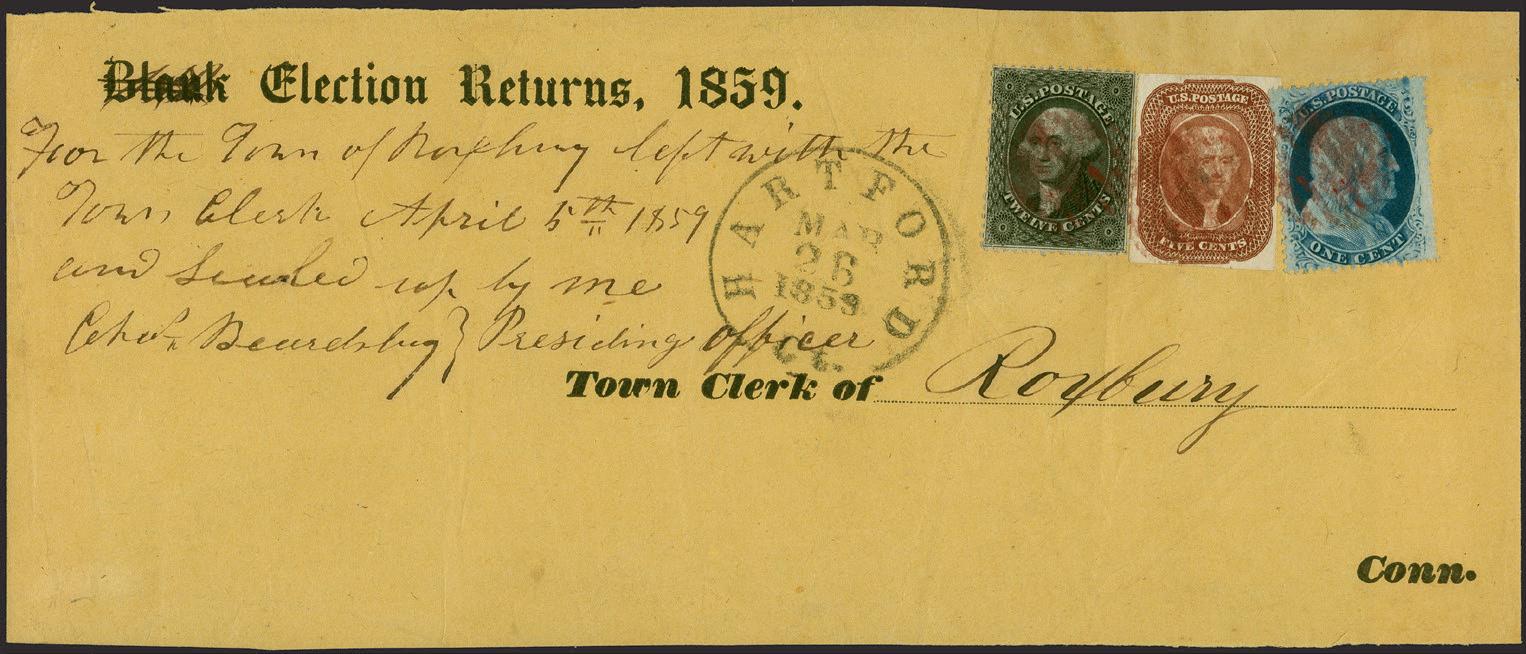 Blank Election Returns, 1859.
For the Town of Roxbury left with the
Town Clerk April 5th 1859
and Sealed up by me
Beardsley } Presiding officer
Town Clerk of Roxbury
Conn.
HARTFORD
MAR
26
1859
CT.
U.S. POSTAGE
TWELVE CENTS
U.S. POSTAGE
FIVE CENTS
U.S. POSTAGE
ONE CENT